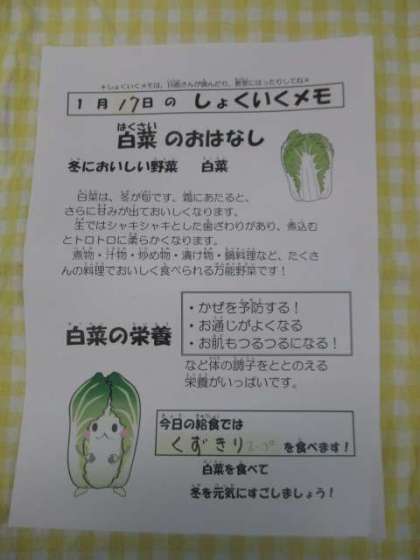 ＊しょくいくメモは、日直さんが読んだり、教室にはったりしてね＊
1月17日の しょくいくメモ
はくさい
白菜 のおはなし
冬においしい野菜 白菜
白菜は、冬が旬です。霜にあたると、
さらに甘みが出ておいしくなります。
生ではシャキシャキとした歯ざわりがあり、煮込む
とトロトロに柔らかくなります。
煮物・汁物・炒め物・漬け物・鍋料理など、たくさ
んの料理でおいしく食べられる万能野菜です！
白菜の栄養
・かぜを予防する！
・お通じがよくなる
・お肌もつるつるになる！
など体の調子をととのえる
栄養がいっぱいです。
今日の給食では
くずきりスープ を食べます！
白菜を食べて
冬を元気にすごしましょう！